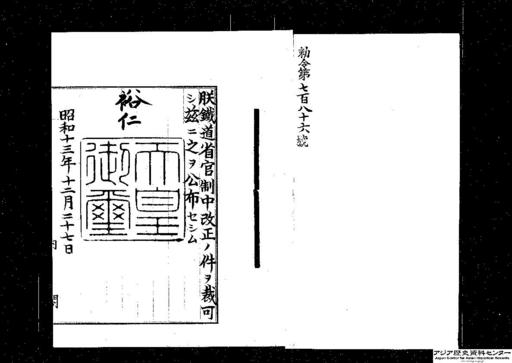 勅令第七百八十六號
朕鐵道省官制中改正ノ件ヲ裁可
シ茲ニ之ヲ公布セシム
裕仁
天皇
御璽
昭和十三年十二月二十七日
内
閣
アジア歴史資料センター
Japan Center for Asian Historical Records